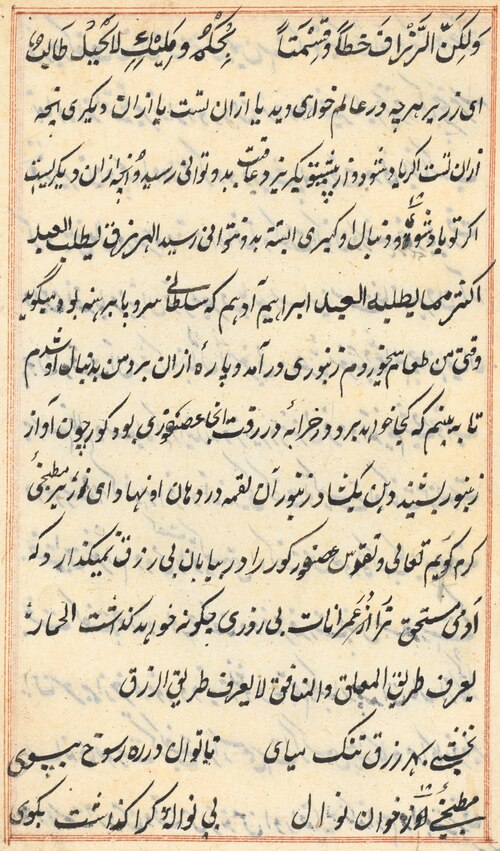 ولکن الرزاق خطا وقسمتا بحکم وملیک لا بحیل طالب
ای زریر هرچه در عالم خواهی دید یا ازان تست یا ازان دیگری انچه
ازان تست اکر باد شود و از پیش تو بکریزد عاقبت بدو توانی رسید و انچه ازان دیکریست
اکر تو باد شوی و دنبال او کیری البتة بدو نتوانی رسید الرزق لیطلب العبد
اکثر مما یطلبه العبد ابراهیم ادهم که سلطانی سر و پا برهنه بود میکوید
وقتی من طعام میخوردم زنبوری در آمد و پارهٔ ازان برد من بدنبال او شدم
تا به بینم که کجا خواهد برد در خرابهٔ در رفت انجا عصفوری بود کور چون آواز
زنبور بشنید دهن بکشاد زنبور آن لقمه در دهان او نهاد ای عزیز مطبخی
کرم کویم تعالی و تقدس عصفور کور را در بیابان بی رزق نمیکذارد که
آدمی مستحق ترا از عمرانات بی روزی چکونه خواهد کذاشت الحمار
یعرف طریق المعلق والمنافق لا یعرف طریق الرزق
نخشبی بهر رزق تنک میای تا توان در ره رسوخ بپوی
مطبخی خوان نوال بی نواله کرا کذاشت بکوی